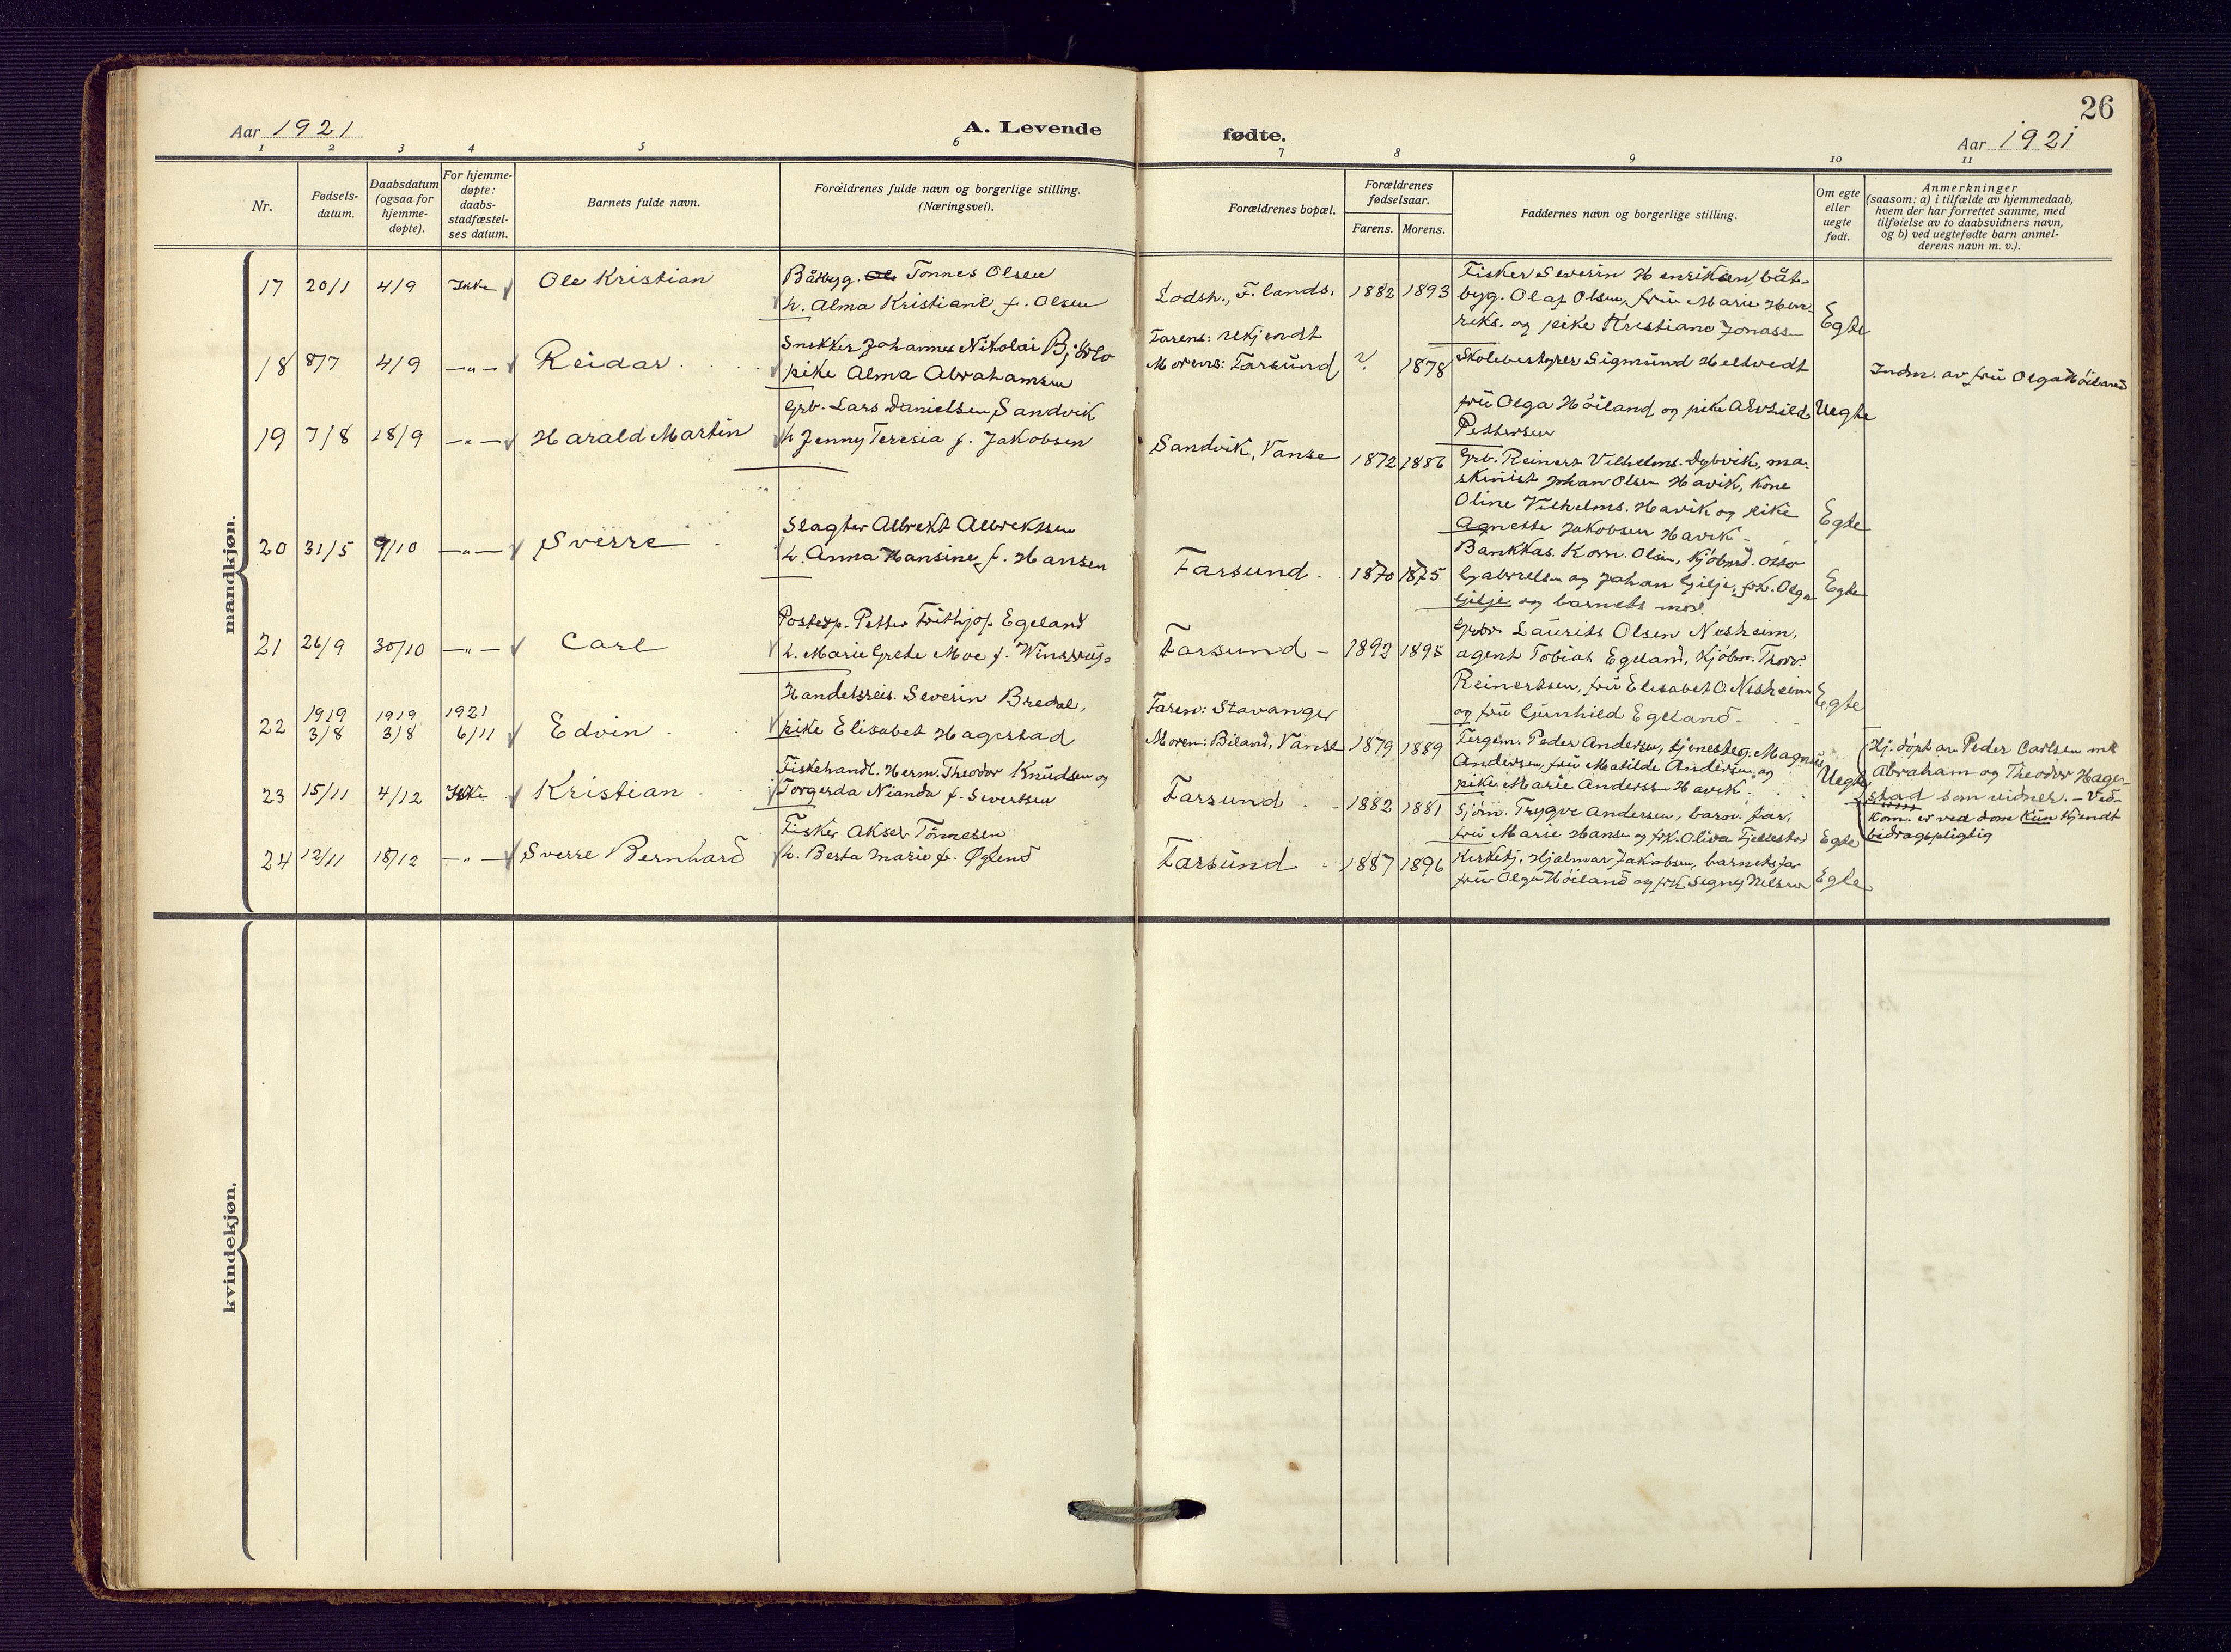 26
Aar 1921
A. Levende
fødte.
Aar 1921
1 2 3 4 5 6 7 8 9 10 11
Nr.
Fødsels-
datum.
Daabsdatum
(ogsaa for
hjemme-
døpte).
For hjemme-
døpte:
daabs-
stadfæstel-
ses datum.
Barnets fulde navn.
Forældrenes fulde navn og borgerlige stilling.
(Næringsvei).
Forældrenes bopæl.
Forældrenes
fødselsaar.
Farens. Morens.
Faddernes navn og borgerlige stilling.
Om egte
eller
uegte
født.
Anmerkninger
(saasom: a) i tilfælde av hjemmedaab,
hvem der har forrettet samme, med
tilføielse av to daabsvidners navn,
og b) ved uegtefødte barn anmel-
derens navn m. v.).
mandkjøn.
17 20/1 4/9 Ikke Ole Kristian
Båtbyg. Ole Tønnes Olsen
h. Alma Kristiane f. Olsen
Lodsh., F. lands. 1882 1893
Fisker Severin Henriksen, båt-
byg. Olaf Olsen, frü Marie Hen-
riks. og pike Kristiane Jonass
Egte
18 8/7 4/9 —"— Reidar
Snekker Johannes Nikolai
pike Alma Abrahamsen
Farens: ukjendt
Morens: Farsund ? 1878
Skolebestyrer Sigmund Heltvedt
frü Olga Höiland og pike Alvhild
Pettersen
Uegte
Indm. av frü Olga Höiland
19 7/8 18/9 —"— Harald Martin
Grb. Lars Danielsen Sandvik
h Jenny Teresia f. Jakobsen
Sandvik, Vanse 1872 1886
Grb. Reinert Vilhelms. Dybvik, ma-
skinist Johan Olsen Havik, kone
Oline Vilhelms. Havik og pike
Agnette Jakobsen Havik
Egte
20 31/5 9/10 —"— Sverre
Slagter Albrekt Albrektsen
h. Anna Hansine f. Hansen
Farsund 1870 1875
Bankkas. Korn. Olsen, Kjöbmd. Otto
Gabrielsen og Johan Gilje, frk. Olga
Gilje og barnets mor.
Egte
21 26/9 30/10 —"— Carl
Postexp. Petter Frithjof Egeland
h. Marie Grete Moe f.
Farsund 1892 1895
Grbr. Laurits Olsen Nesheim,
agent Tobias Egeland, Kjöbm. Thorv.
Reinertsen, frü Elisabet O. Nesheim
og frü Gunhild Egeland
Egte
22 1919 3/8 1919 3/8 1921 6/11 Edvin
Handelsreis. Severin Bredal,
pike Elisabet Hagestad
Faren: Stavanger
Moren: Biland, Vanse 1879 1889
Fergem. Peder Andersen, tjenesteg. Magnus
Andersen, frü Matilde Andersen og
pike Marie Anderss Havik
Uegte
Hj. döpt av Peder Carlsen med
Abraham og Theodor Hage-
stad som vidner. — Ved-
kom. er ved dom kün kjendt
bidragspligtig
23 15/11 4/12 Ikke Kristian
Fiskehandl. Herm. Theodor Knudsen og
Torgerda Nianda f. Sivertsen
Farsund 1882 1881
Sjöm. Trygve Andersen, barn. far,
frü Marie Hansen og frk. Oliva Fjellestad
Egte
24 12/11 18/12 —"— Sverre Bernhard
Fisker Aksel Tönnesen
h. Berta Marie f. Öglend
Farsund 1887 1896
Kirketj. Hjalmar Jakobsen, barnets far
frü Olga Höiland og frk. Signy Nelsen
Egte
kvindekjøn.